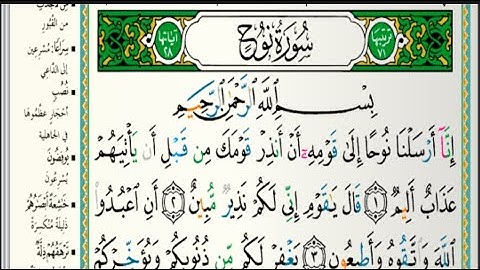 ترتيبها ٧١ سُورَةُ نُوحٍ آياتها ٢٨
بِسْمِ ٱللَّهِ ٱلرَّحْمَٰنِ ٱلرَّحِيمِ
إِنَّآ أَرْسَلْنَا نُوحًا إِلَىٰ قَوْمِهِۦٓ أَنْ أَنذِرْ قَوْمَكَ مِن قَبْلِ أَن يَأْتِيَهُمْ
عَذَابٌ أَلِيمٌ ١ قَالَ يَٰقَوْمِ إِنِّى لَكُمْ نَذِيرٌ مُّبِينٌ ٢ أَنِ ٱعْبُدُوا۟
ٱللَّهَ وَٱتَّقُوهُ وَأَطِيعُونِ ٣ يَغْفِرْ لَكُم مِّن ذُنُوبِكُمْ وَيُؤَخِّرْكُمْ
من القُبُورِ
سِرَاعًا: مُسْرِعين
إلى الدَّاعي
نُصُبٍ
أحجار عظّموها
في الجاهلية
يُوفِضُونَ
يُسْرعون
خَٰشِعَةً أَبْصَٰرُهُمْ
ذليلة منكسرة
تَرْهَقُهُمْ ذِلَّةٌ